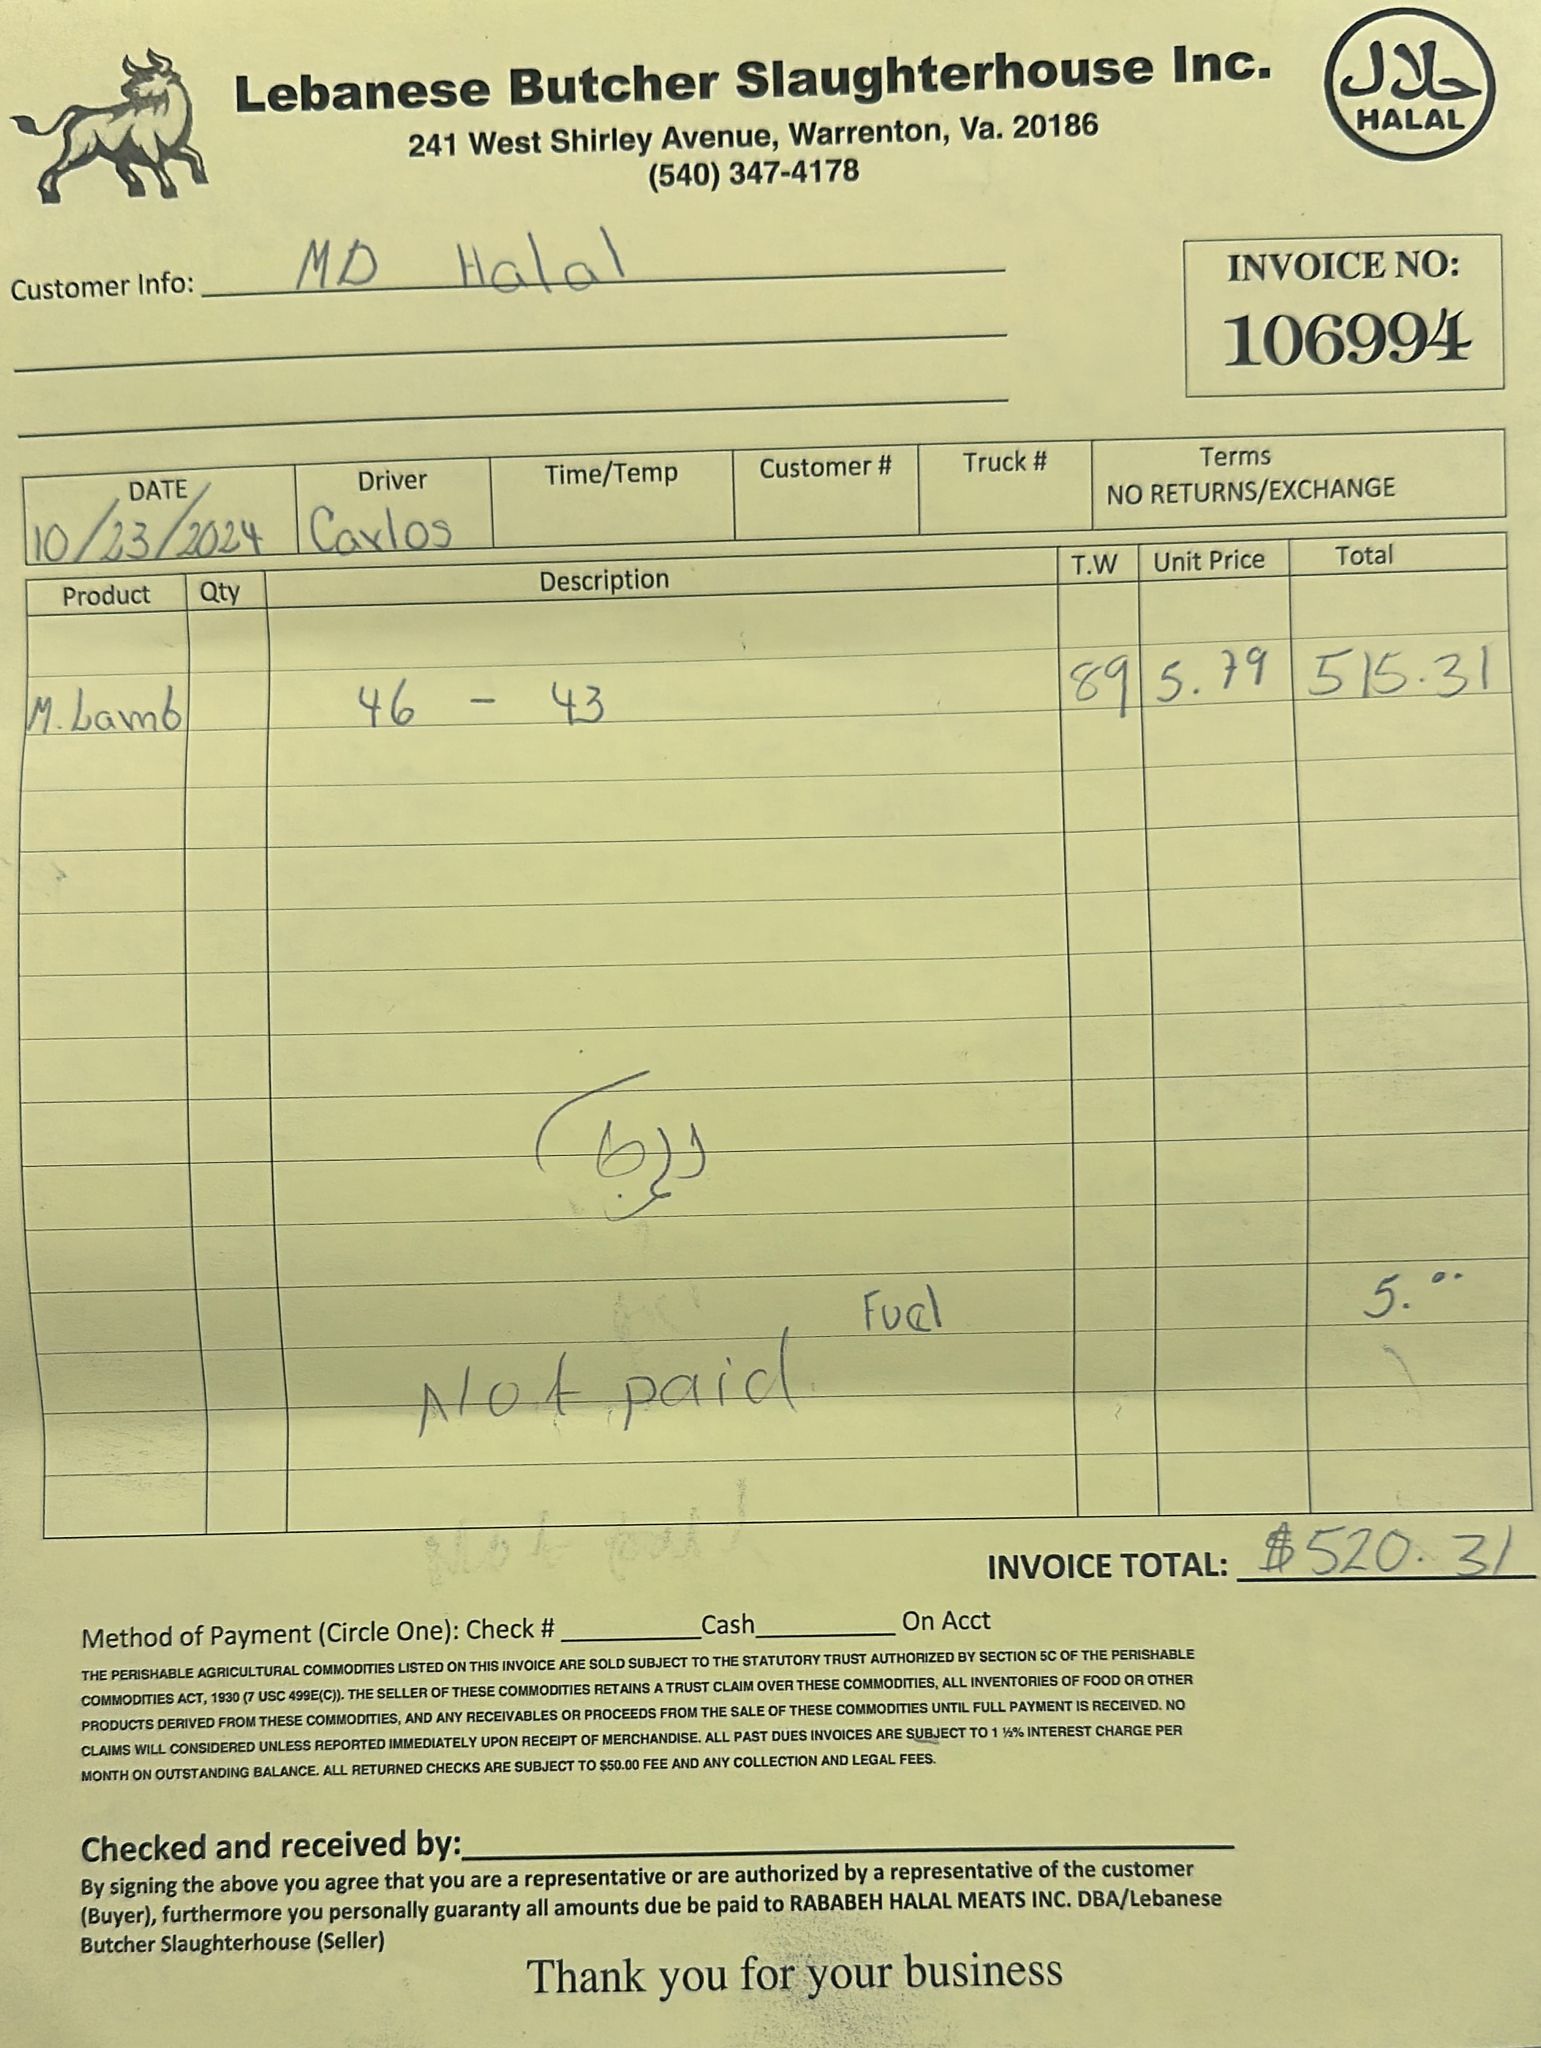 Lebanese Butcher Slaughterhouse Inc.
241 West Shirley Avenue, Warrenton, Va. 20186
(540) 347-4178
حلال
HALAL
Customer Info: MD Halal
INVOICE NO:
106994
DATE Driver Time/Temp Customer # Truck # Terms
NO RETURNS/EXCHANGE
10/23/2024 Carlos
Product Qty Description T.W Unit Price Total
M. Lamb 46 - 43 89 5.79 515.31
Fuel 5.00
Not paid
INVOICE TOTAL: $520.31
Method of Payment (Circle One): Check # Cash On Acct
THE PERISHABLE AGRICULTURAL COMMODITIES LISTED ON THIS INVOICE ARE SOLD SUBJECT TO THE STATUTORY TRUST AUTHORIZED BY SECTION 5C OF THE PERISHABLE
COMMODITIES ACT, 1930 (7 USC 499E(C)). THE SELLER OF THESE COMMODITIES RETAINS A TRUST CLAIM OVER THESE COMMODITIES, ALL INVENTORIES OF FOOD OR OTHER
PRODUCTS DERIVED FROM THESE COMMODITIES, AND ANY RECEIVABLES OR PROCEEDS FROM THE SALE OF THESE COMMODITIES UNTIL FULL PAYMENT IS RECEIVED. NO
CLAIMS WILL CONSIDERED UNLESS REPORTED IMMEDIATELY UPON RECEIPT OF MERCHANDISE. ALL PAST DUES INVOICES ARE SUBJECT TO 1 ½% INTEREST CHARGE PER
MONTH ON OUTSTANDING BALANCE. ALL RETURNED CHECKS ARE SUBJECT TO $50.00 FEE AND ANY COLLECTION AND LEGAL FEES.
Checked and received by:
By signing the above you agree that you are a representative or are authorized by a representative of the customer
(Buyer), furthermore you personally guaranty all amounts due be paid to RABABEH HALAL MEATS INC. DBA/Lebanese
Butcher Slaughterhouse (Seller)
Thank you for your business